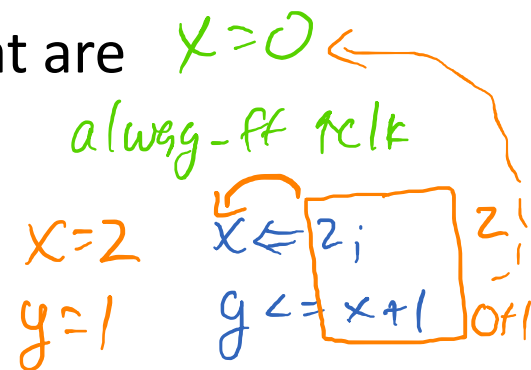 nt are x=0
alwag-ff ↑clk
x=2 x<=2; 2
y=1 y<=x+1 0+1